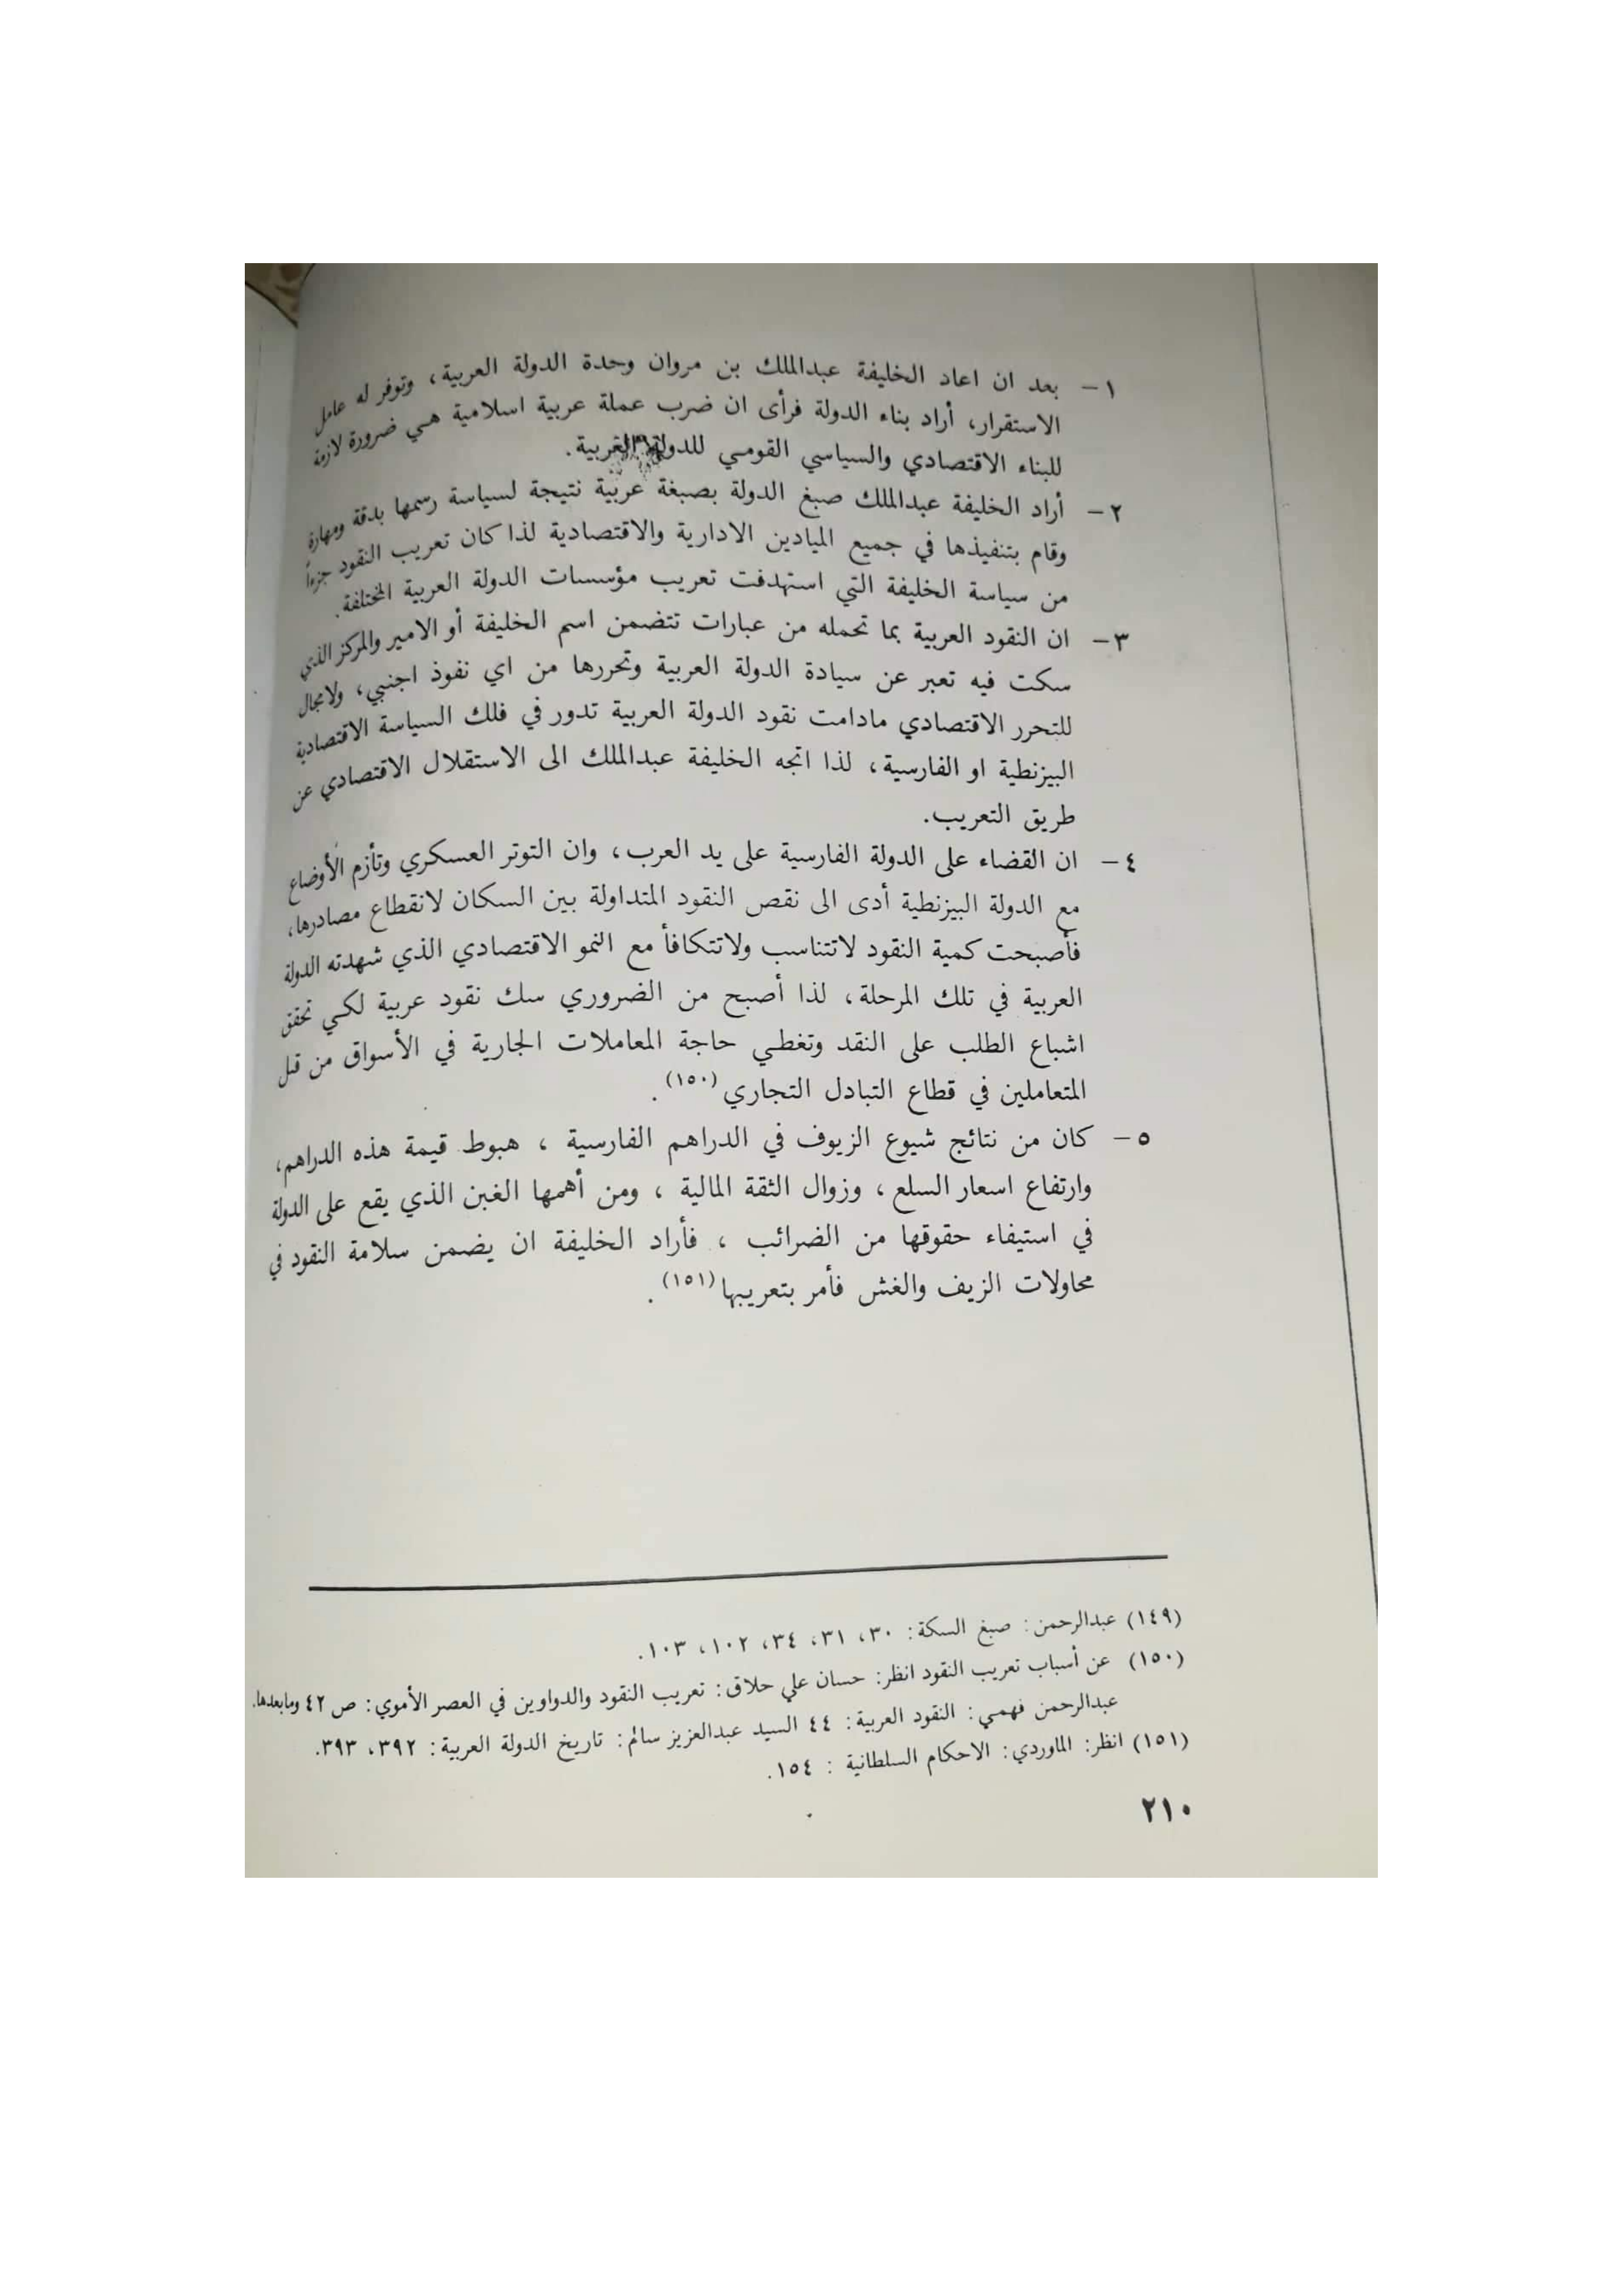 ١ - بعد ان اعاد الخليفة عبدالملك بن مروان وحدة الدولة العربية، وتوفر له عامل
الاستقرار، أراد بناء الدولة فرأى ان ضرب عملة عربية اسلامية هي ضرورة لازمة
للبناء الاقتصادي والسياسي القومي للدولة العربية.
٢ - أراد الخليفة عبدالملك صبغ الدولة بصبغة عربية نتيجة لسياسة رسمها بدقة ومهارة
وقام بتنفيذها في جميع الميادين الادارية والاقتصادية لذا كان تعريب النقود جزءاً
من سياسة الخليفة التي استهدفت تعريب مؤسسات الدولة العربية المختلفة.
٣ - ان النقود العربية بما تحمله من عبارات تتضمن اسم الخليفة أو الامير والمركز الذي
سكت فيه تعبر عن سيادة الدولة العربية وتحررها من اي نفوذ اجنبي، ولامجال
للتحرر الاقتصادي مادامت نقود الدولة العربية تدور في فلك السياسة الاقتصادية
البيزنطية او الفارسية، لذا اتجه الخليفة عبدالملك الى الاستقلال الاقتصادي عن
طريق التعريب.
٤ - ان القضاء على الدولة الفارسية على يد العرب، وان التوتر العسكري وتأزم الأوضاع
مع الدولة البيزنطية أدى الى نقص النقود المتداولة بين السكان لانقطاع مصادرها،
فأصبحت كمية النقود لاتتناسب ولاتتكافأ مع النمو الاقتصادي الذي شهدته الدولة
العربية في تلك المرحلة، لذا أصبح من الضروري سك نقود عربية لكي تحقق
اشباع الطلب على النقد وتغطي حاجة المعاملات الجارية في الأسواق من قبل
المتعاملين في قطاع التبادل التجاري (١٥٠).
٥ - كان من نتائج شيوع الزيوف في الدراهم الفارسية ، هبوط قيمة هذه الدراهم،
وارتفاع اسعار السلع ، وزوال الثقة المالية ، ومن أهمها الغبن الذي يقع على الدولة
في استيفاء حقوقها من الضرائب ، فأراد الخليفة ان يضمن سلامة النقود في
محاولات الزيف والغش فأمر بتعريبها (١٥١).
(١٤٩) عبدالرحمن: صبغ السكة: ٣٠، ٣١، ٣٤، ١٠٢، ١٠٣.
(١٥٠) عن أسباب تعريب النقود انظر: حسان علي حلاق: تعريب النقود والدواوين في العصر الأموي: ص ٤٢ ومابعدها.
عبدالرحمن فهمي: النقود العربية: ٤٤ السيد عبدالعزيز سالم: تاريخ الدولة العربية: ٣٩٢، ٣٩٣.
(١٥١) انظر: الماوردي: الاحكام السلطانية : ١٥٤.
٢١٠